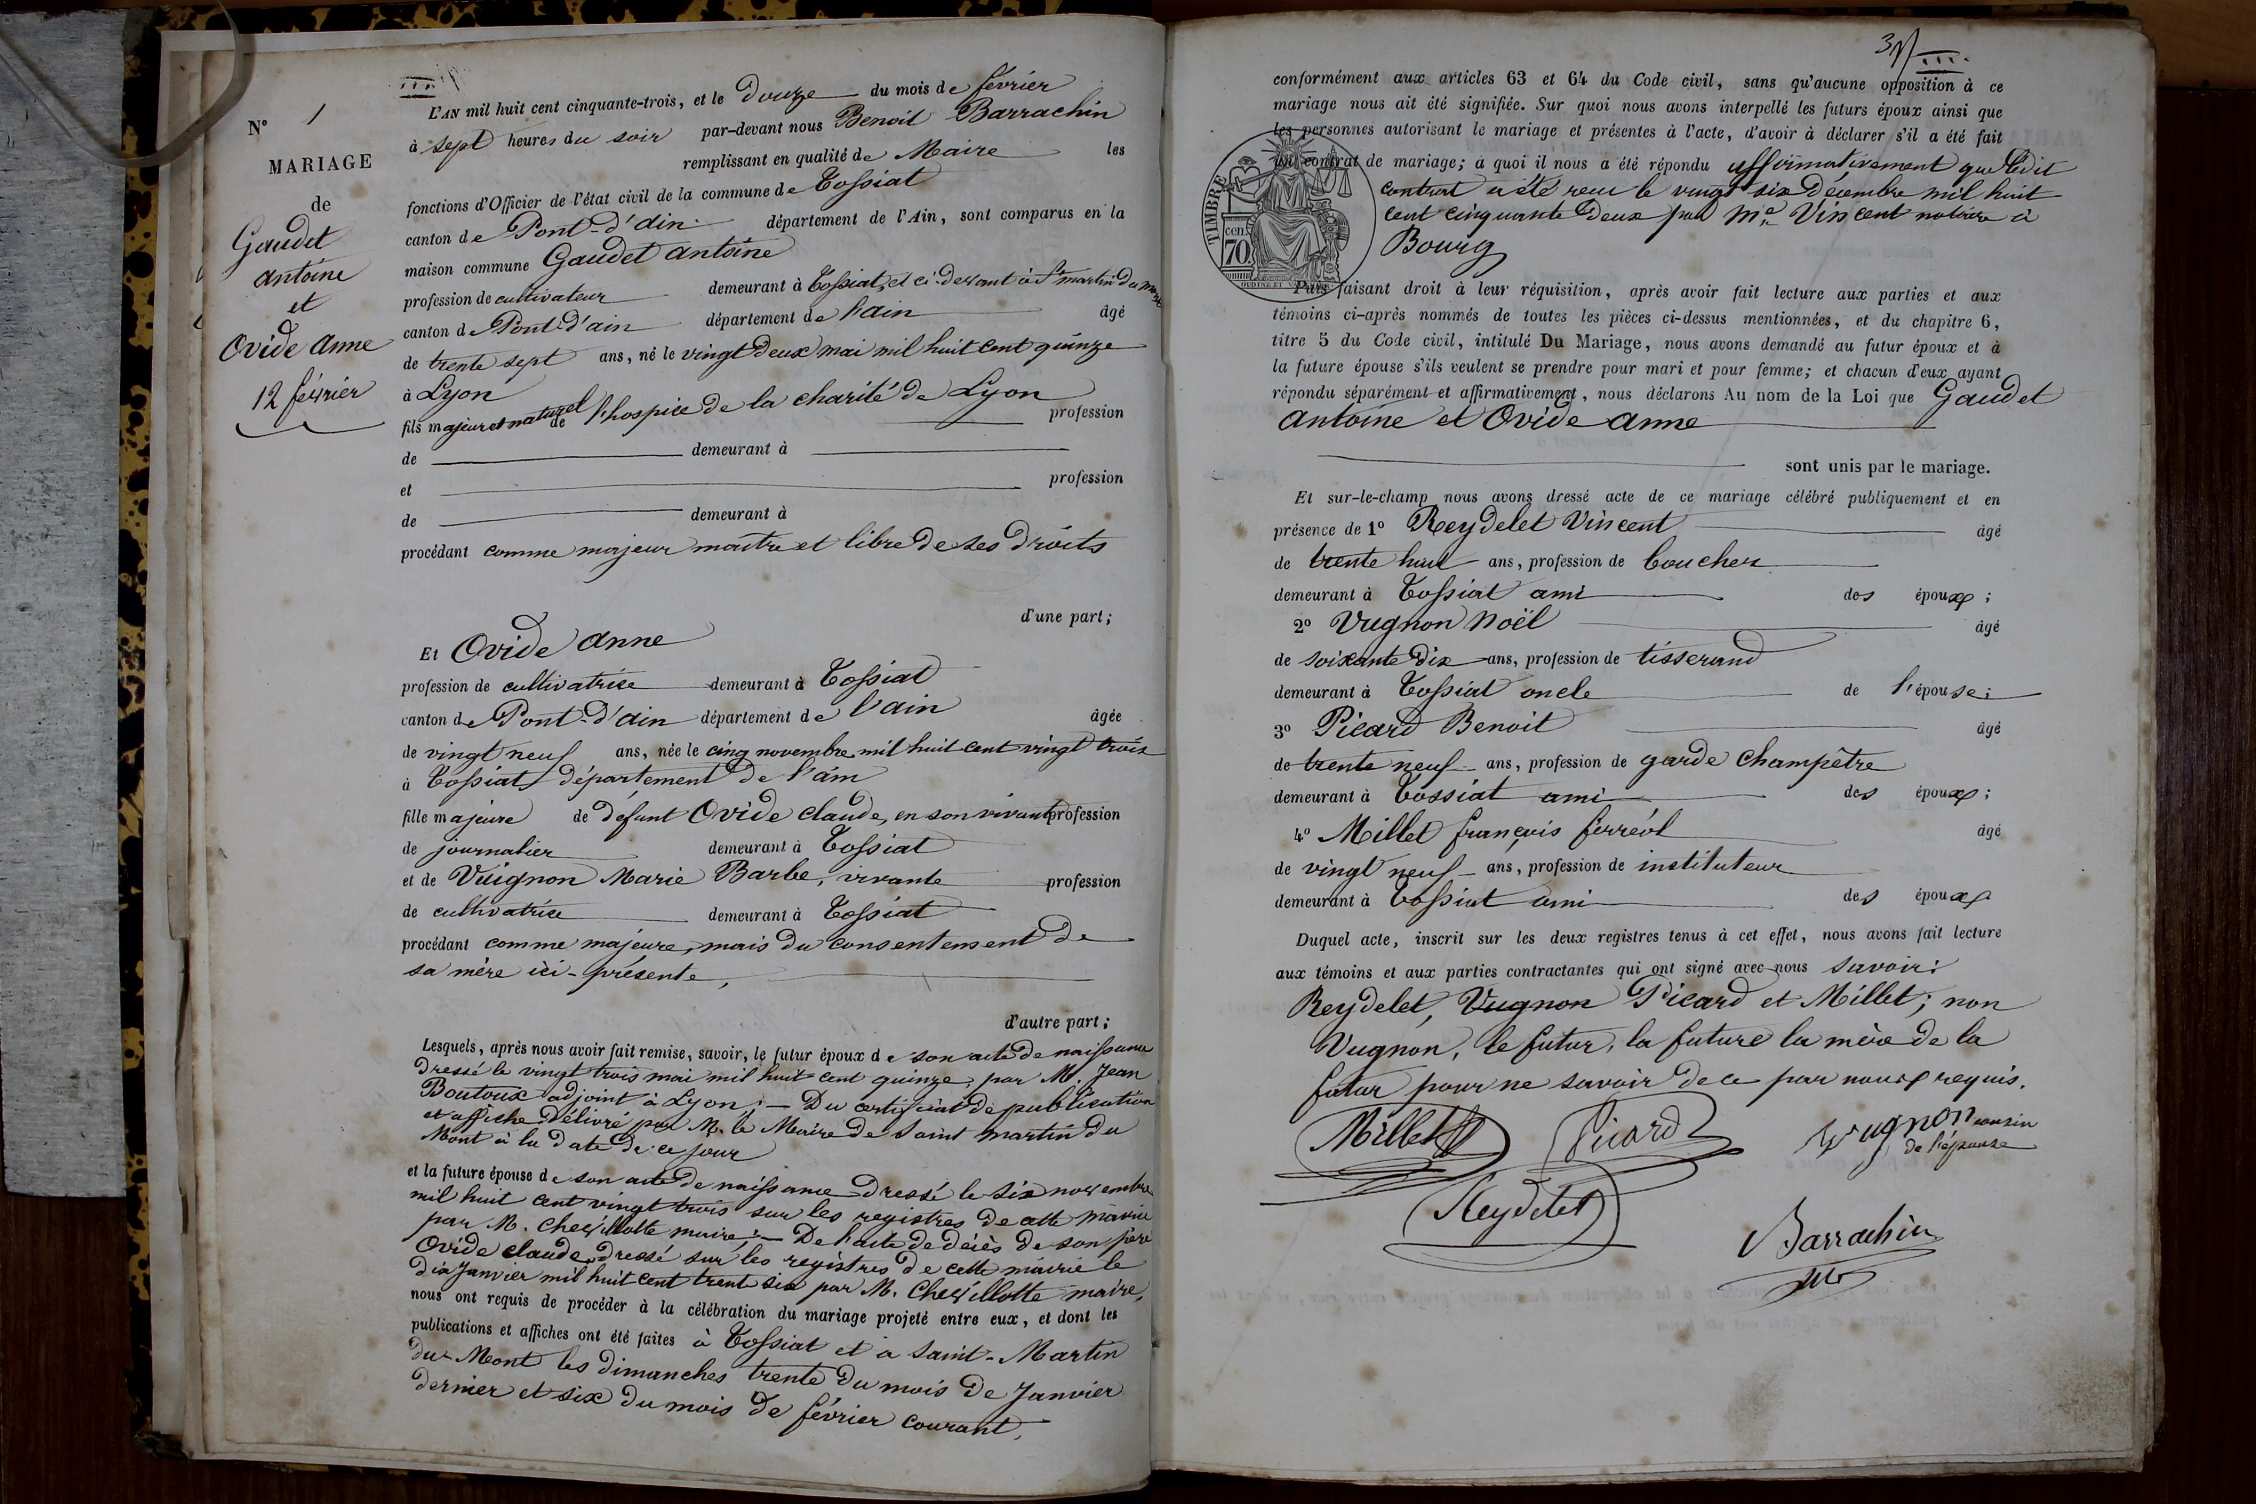 N° 1
MARIAGE
de
Gaudet
antoine
et
Ovide anne
12 février
L'AN mil huit cent cinquante-trois, et le Douze du mois de février
à sept heures du soir par-devant nous Benoit Barrachin
remplissant en qualité de Maire les
fonctions d'Officier de l'état civil de la commune de Tossiat
canton de Pont-d'ain département de l'Ain, sont comparus en la
maison commune Gaudet antoine
profession de cultivateur demeurant à Tossiat, et ci-devant à St martin du mont
canton de Pont-d'ain département de l'ain âgé
de trente sept ans, né le vingt deux mai mil huit cent quinze
à Lyon
fils majeur et naturel de l'hospice de la charité de Lyon profession
de demeurant à
et profession
de demeurant à
procédant comme majeur maître et libre de ses droits
d'une part;
Et Ovide anne
profession de cultivatrice demeurant à Tossiat
canton de Pont-d'ain département de l'ain âgée
de vingt neuf ans, née le cinq novembre mil huit cent vingt trois
à Tossiat, département de l'ain
fille majeure de défunt Ovide claude, en son vivant profession
de journalier demeurant à Tossiat
et de Vuignon Marie Barbe, vivante profession
de cultivatrice demeurant à Tossiat
procédant comme majeure, mais du consentement de
sa mère ici-présente,
d'autre part;
Lesquels, après nous avoir fait remise, savoir, le futur époux de son acte de naissance
dressé le vingt trois mai mil huit cent quinze, par M. Jean
Boutoux adjoint à Lyon; — Du certificat de publication
et affiche délivré par M. le Maire de Saint martin du
Mont à la date de ce jour
et la future épouse de son acte de naissance dressé le six novembre
mil huit cent vingt trois sur les registres de cette mairie
par M. Chevillotte maire; — De l'acte de décès de son père
Ovide claude, dressé sur les registres de cette mairie le
dix Janvier mil huit cent trente six par M. Chevillotte maire,
nous ont requis de procéder à la célébration du mariage projeté entre eux, et dont les
publications et affiches ont été faites à Tossiat et à Saint-Martin
du-Mont les dimanches trente du mois de Janvier
dernier et six du mois de février courant,
conformément aux articles 63 et 64 du Code civil, sans qu'aucune opposition à ce
mariage nous ait été signifiée. Sur quoi nous avons interpellé les futurs époux ainsi que
les personnes autorisant le mariage et présentes à l'acte, d'avoir à déclarer s'il a été fait
un contrat de mariage; à quoi il nous a été répondu affirmativement que ledit
contrat a été reçu le vingt six décembre mil huit
cent cinquante deux par Me Vincent notaire à
Bourg
TIMBRE
cen.
70
Puis faisant droit à leur réquisition, après avoir fait lecture aux parties et aux
témoins ci-après nommés de toutes les pièces ci-dessus mentionnées, et du chapitre 6,
titre 5 du Code civil, intitulé Du Mariage, nous avons demandé au futur époux et à
la future épouse s'ils veulent se prendre pour mari et pour femme; et chacun d'eux ayant
répondu séparément et affirmativement, nous déclarons Au nom de la Loi que Gaudet
antoine et Ovide anne
sont unis par le mariage.
Et sur-le-champ nous avons dressé acte de ce mariage célébré publiquement et en
présence de 1° Reydelet Vincent âgé
de trente huit ans, profession de boucher
demeurant à Tossiat ami des époux;
2° Vugnon Noël âgé
de soixante dix ans, profession de tisserand
demeurant à Tossiat oncle de l'épouse;
3° Picard Benoit âgé
de trente neuf ans, profession de garde champêtre
demeurant à Tossiat ami des époux;
4° Millet françois ferréol âgé
de vingt neuf ans, profession de instituteur
demeurant à Tossiat ami des époux
Duquel acte, inscrit sur les deux registres tenus à cet effet, nous avons fait lecture
aux témoins et aux parties contractantes qui ont signé avec nous savoir:
Reydelet, Vugnon Picard et Millet; non
Vugnon, le futur, la future la mère de la
futur pour ne savoir de ce par nous requis.
Millet Picard Vugnon cousin
de l'épouse
Reydelet
Barrachin